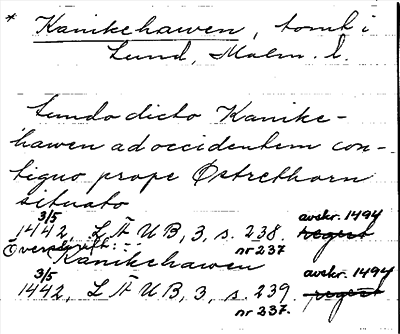 * Kanikehawen, tomt i
Lund, Malm. l.
fundo dicto Kanike-
hawen ad occidentem con-
tiguo prope Østrethorn
situato
3/5 avskr. 1494
1442, L Ä U B, 3, s. 238. regest
Överskrift: nr 237
Kanikehawen
3/5 avskr. 1494
1442, L Ä U B, 3, s. 239. regest
nr 237.